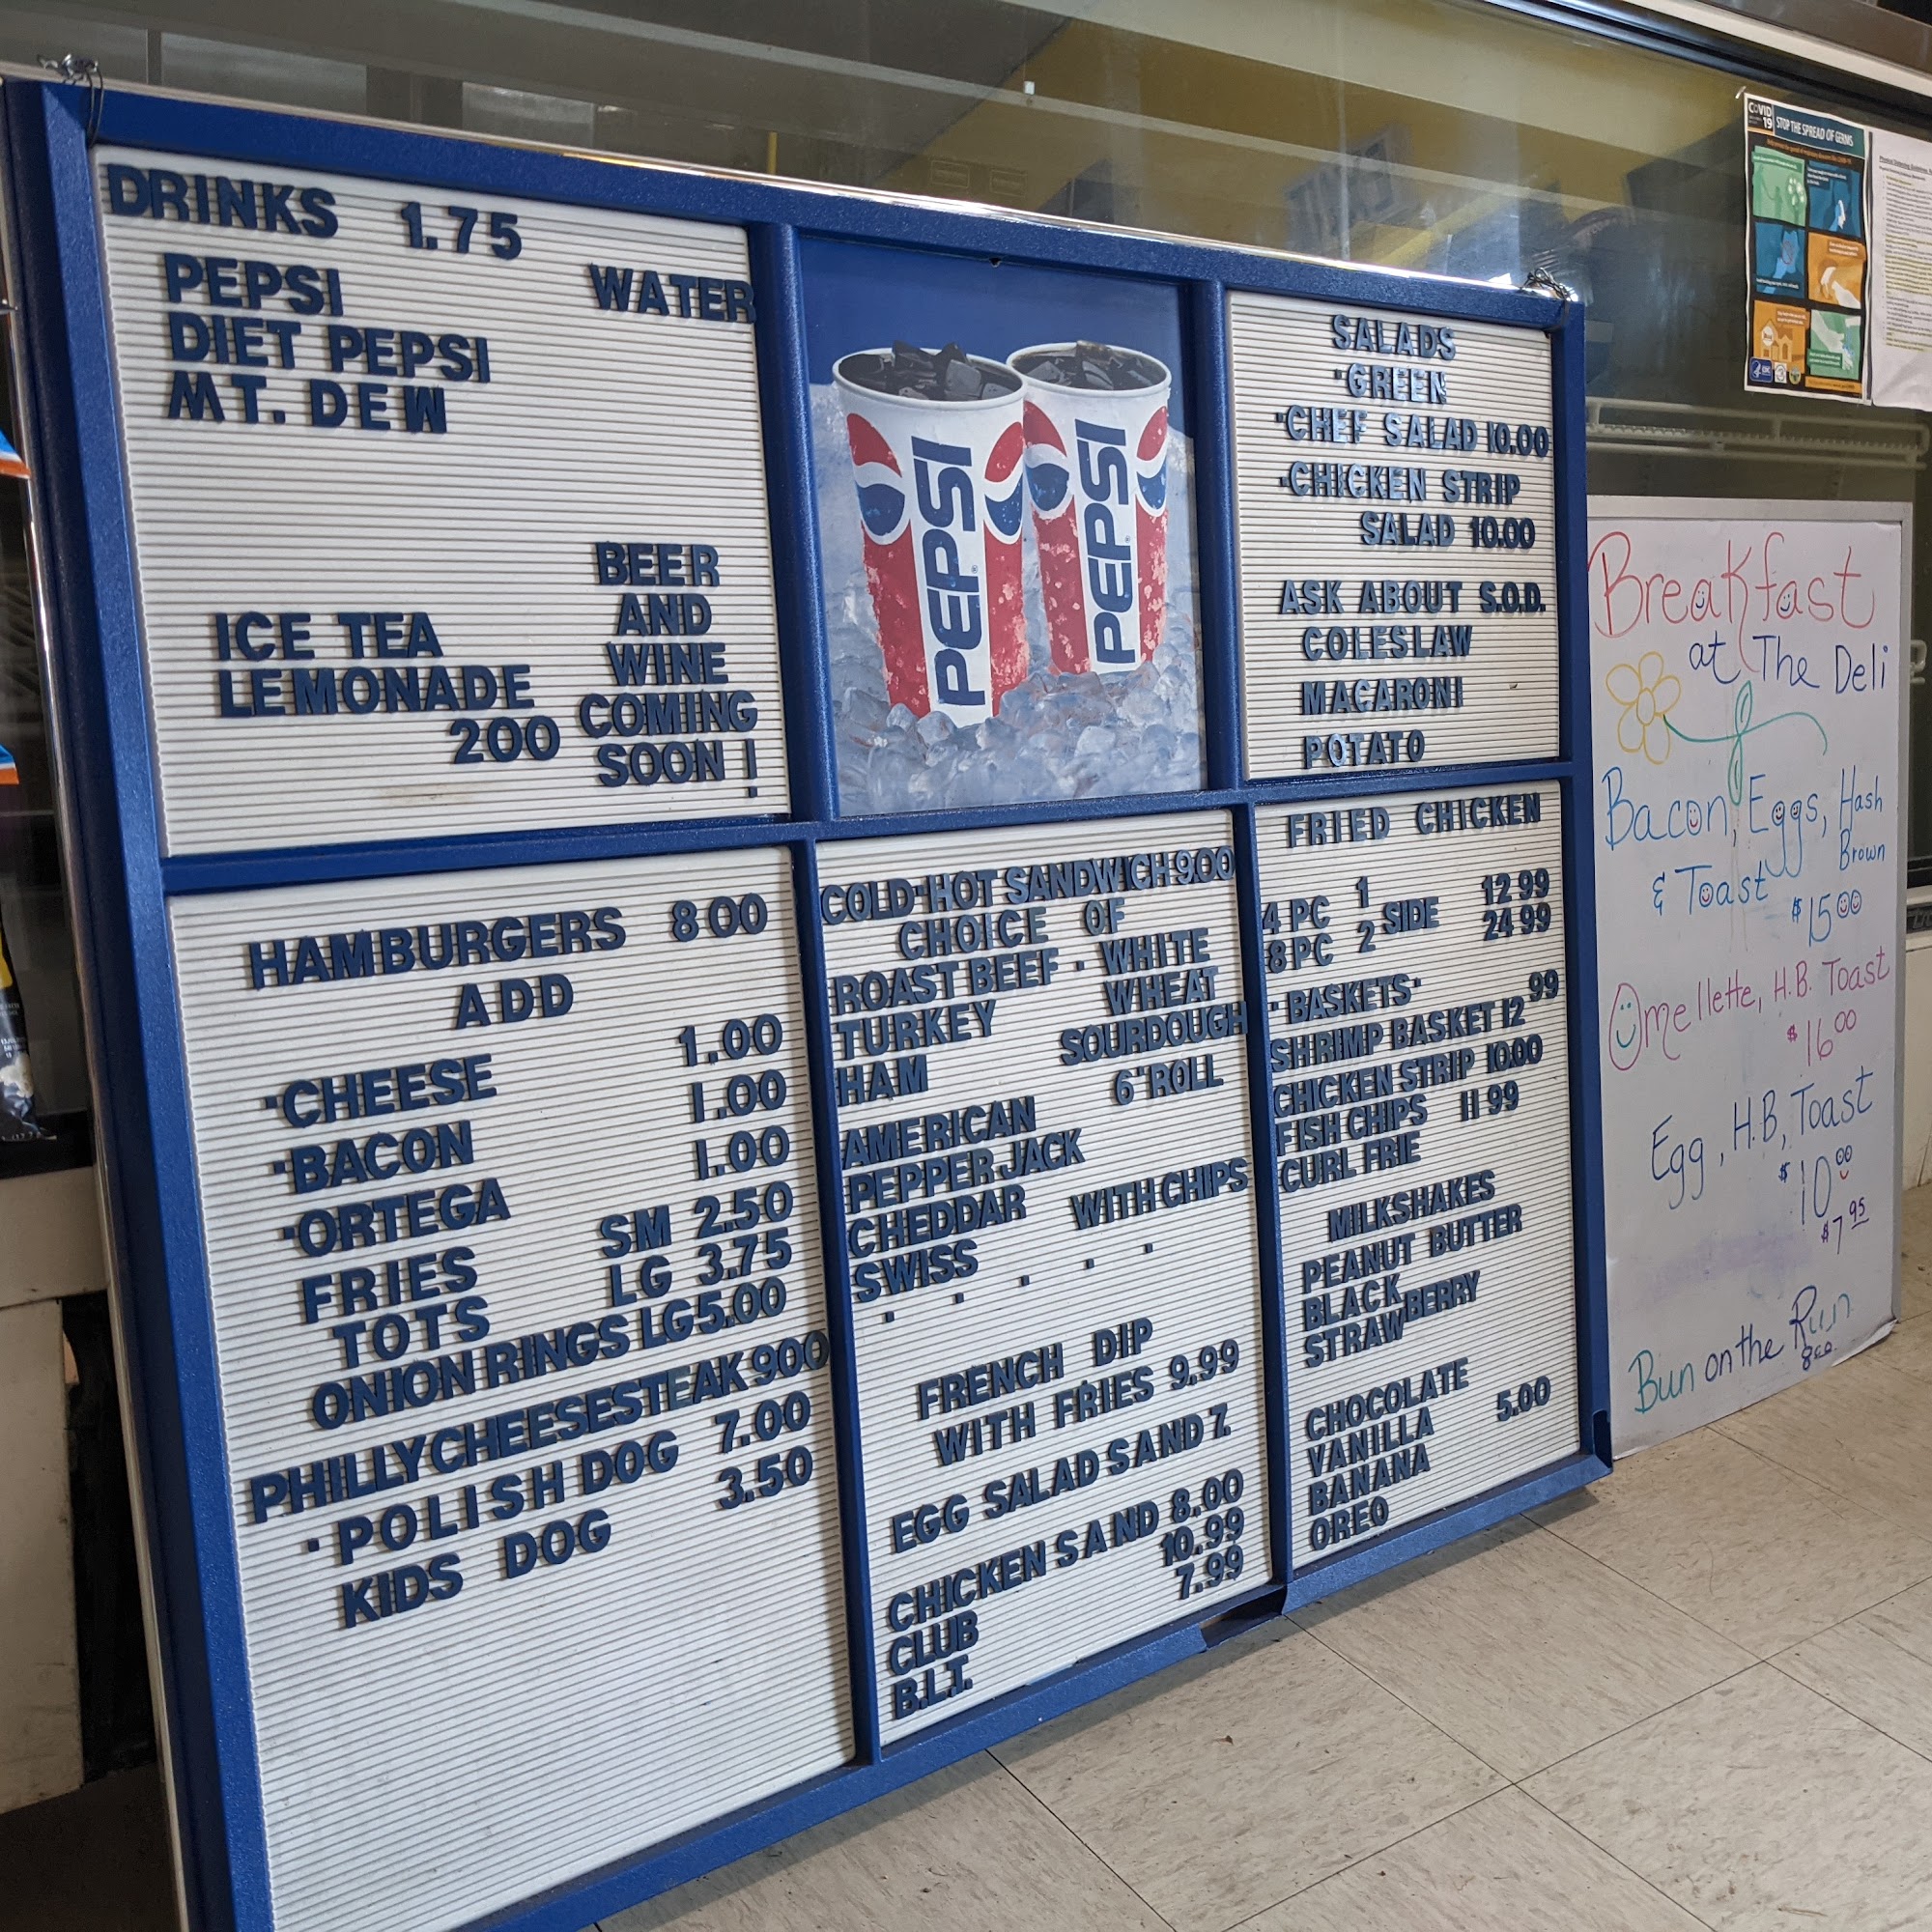 DRINKS 1.75
PEPSI WATER
DIET PEPSI
MT. DEW
ICE TEA
LEMONADE
200
BEER
AND
WINE
COMING
SOON!
PEPSI
PEPSI
SALADS
·GREEN
·CHEF SALAD 10.00
·CHICKEN STRIP
SALAD 10.00
ASK ABOUT S.O.D.
COLESLAW
MACARONI
POTATO
HAMBURGERS 800
ADD
·CHEESE 1.00
·BACON 1.00
·ORTEGA 1.00
FRIES SM 2.50
TOTS LG 3.75
ONION RINGS LG 5.00
PHILLY CHEESESTEAK 900
·POLISH DOG 7.00
KIDS DOG 3.50
COLD·HOT SANDWICH 9.00
CHOICE OF
ROAST BEEF · WHITE
TURKEY WHEAT
HAM SOURDOUGH
6" ROLL
AMERICAN
PEPPER JACK
CHEDDAR WITH CHIPS
SWISS
. . . . .
FRENCH DIP
WITH FRIES 9.99
EGG SALAD SAND 7.
CHICKEN SAND 8.00
CLUB 10.99
B.L.T. 7.99
FRIED CHICKEN
4 PC 1 SIDE 12 99
8 PC 2 24 99
·BASKETS·
SHRIMP BASKET 12 99
CHICKEN STRIP 10.00
FISH CHIPS 11 99
CURL FRIE
MILKSHAKES
PEANUT BUTTER
BLACKBERRY
STRAW
CHOCOLATE
VANILLA 5.00
BANANA
OREO
COVID 19 STOP THE SPREAD OF GERMS
CDC
Breakfast
at The Deli
Bacon, Eggs, Hash
Brown
& Toast $15.00
Omellette, H.B. Toast
$16.00
Egg, H.B, Toast
$10.00
$7.95
Bun on the Run